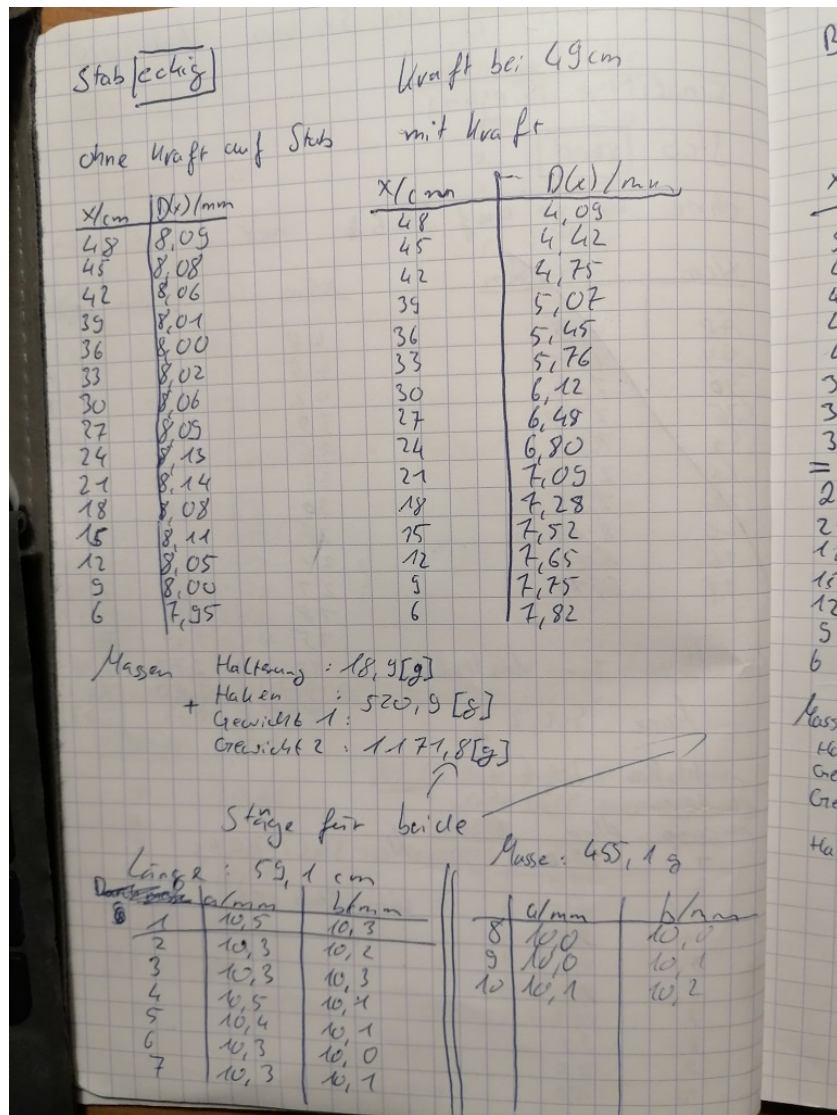 Stab eckig
Kraft bei 49cm
ohne Kraft auf Stab
mit Kraft
x/cm D(x)/mm
48 8,09
45 8,08
42 8,06
39 8,01
36 8,00
33 8,02
30 8,06
27 8,09
24 8,13
21 8,14
18 8,08
15 8,11
12 8,05
9 8,00
6 7,95
x/cm D(x)/mm
48 4,09
45 4,42
42 4,75
39 5,07
36 5,45
33 5,76
30 6,12
27 6,48
24 6,80
21 7,09
18 7,28
15 7,52
12 7,65
9 7,75
6 7,82
Massen Halterung : 18,9[g]
+ Haken : 520,9 [g]
Gewicht 1 :
Gewicht 2 : 1171,8[g]
für beide
Länge : 59,1 cm
a/mm b/mm
1 10,5 10,3
2 10,3 10,2
3 10,3 10,3
4 10,5 10,1
5 10,4 10,1
6 10,3 10,0
7 10,3 10,1
Masse : 455,1 g
a/mm b/mm
8 10,0 10,0
9 10,0 10,1
10 10,1 10,2